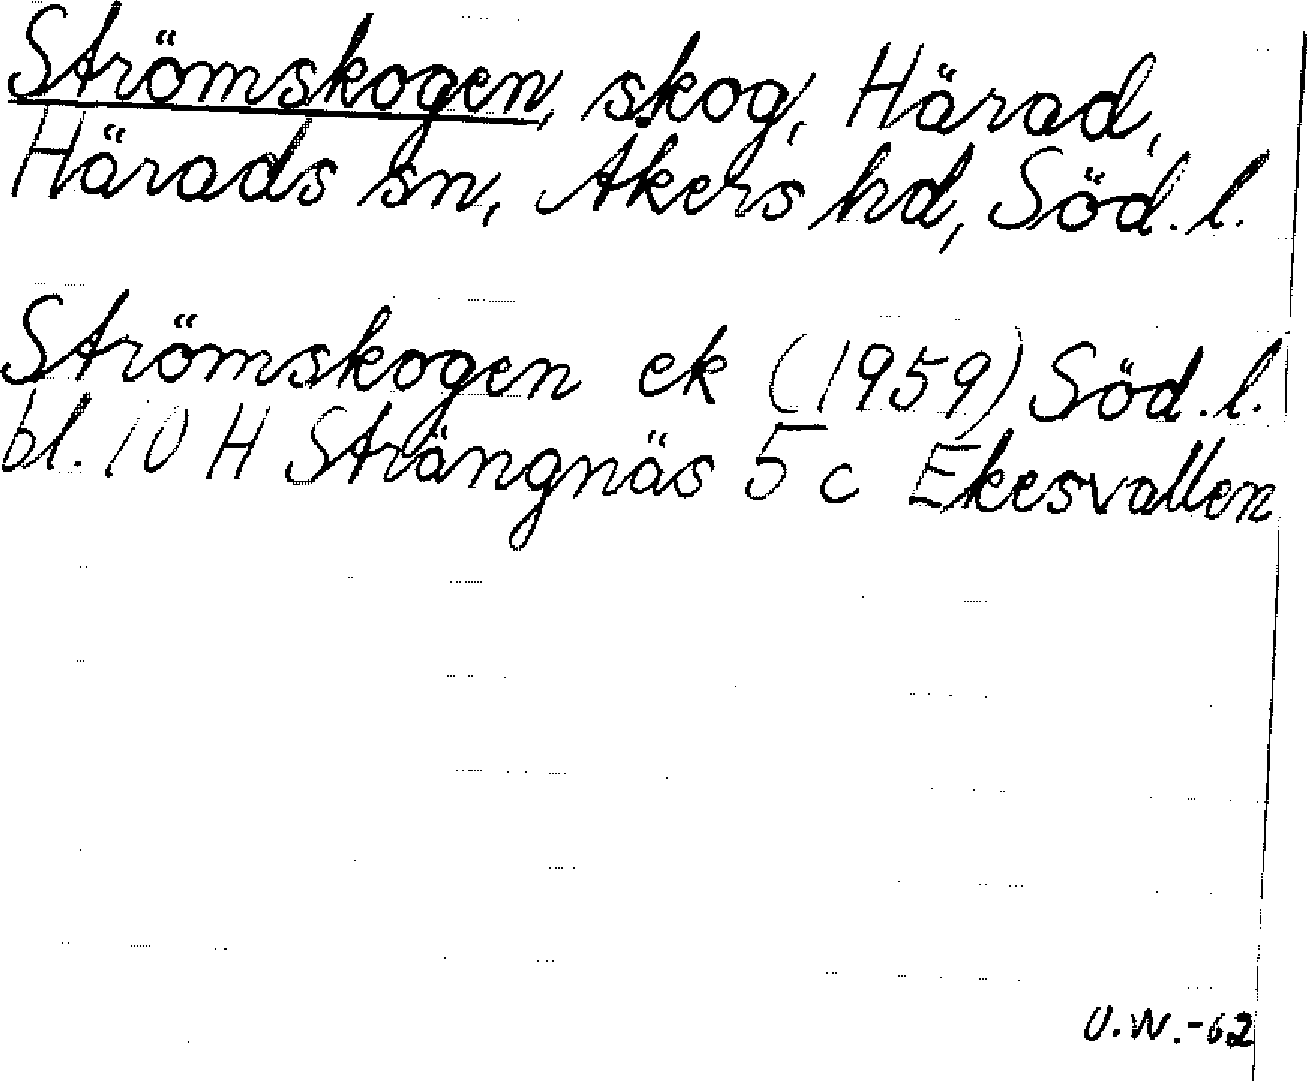 Strömskogen, skog, Härad,
Härads sn, Åkers hd, Söd. l.
Strömskogen ek (1959) Söd. l.
bl. 10 H Strängnäs 5 c Ekesvallen
U.W.-62